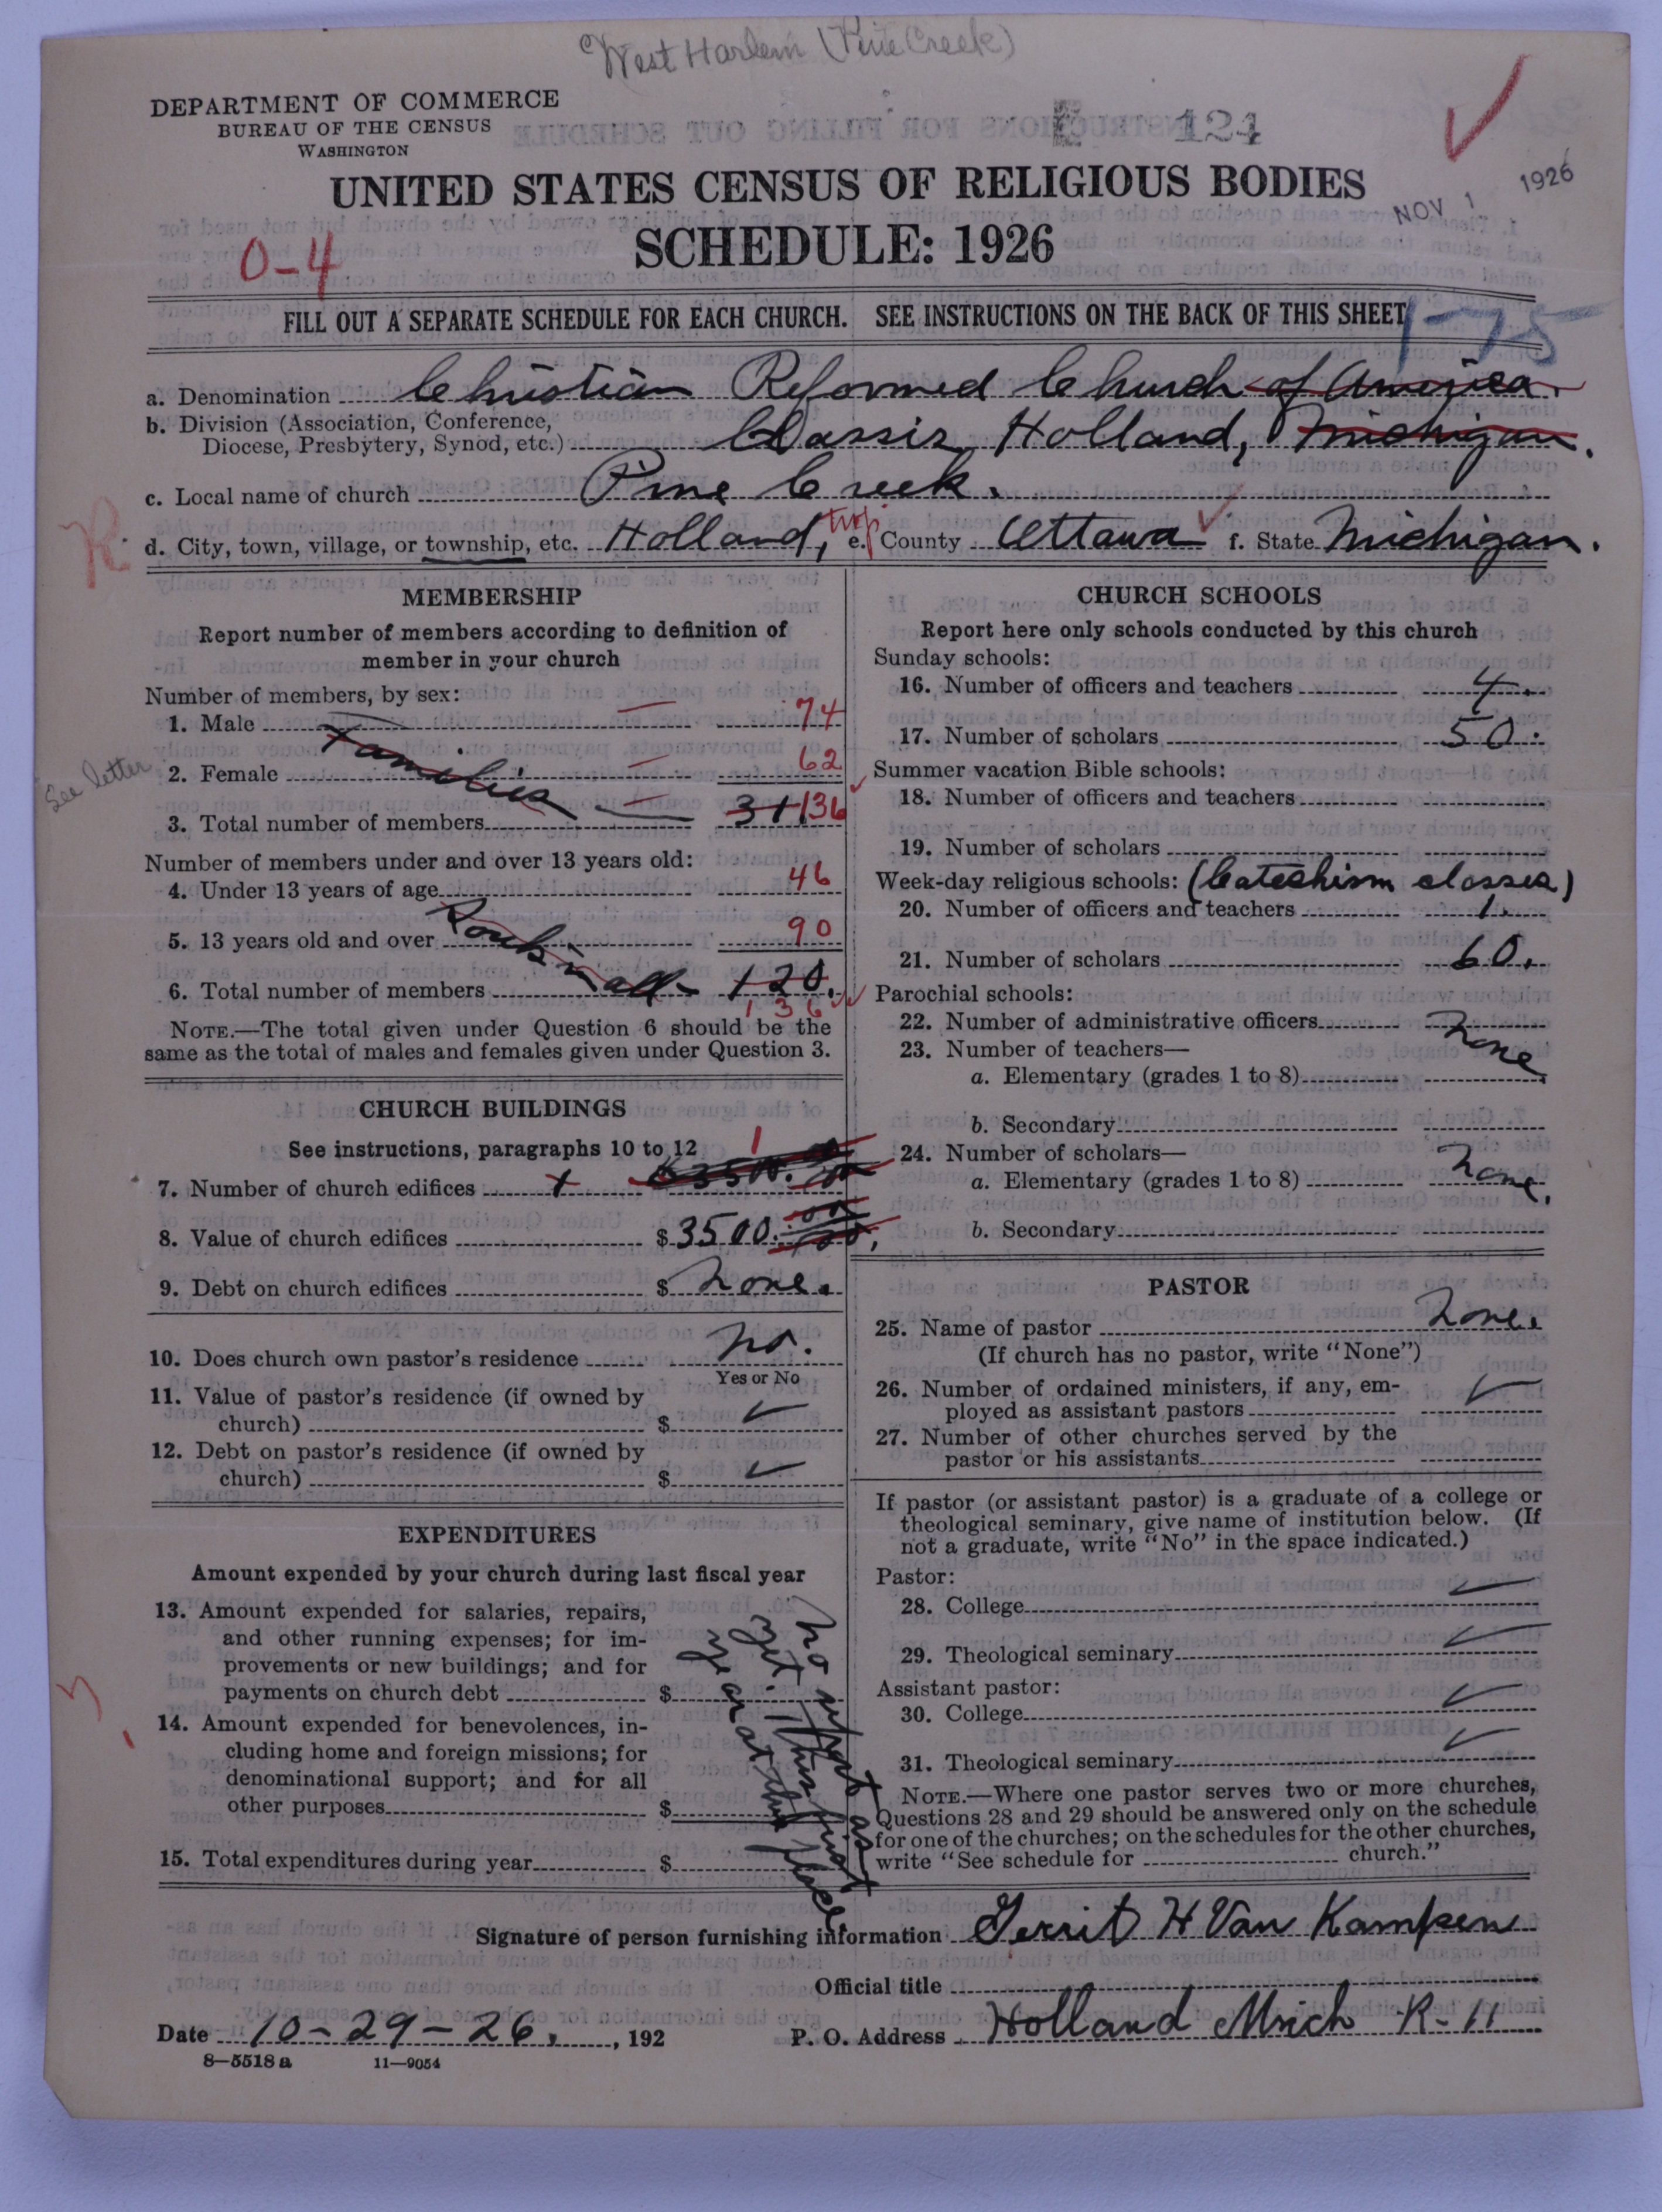 West Harlem (Pine Creek)
DEPARTMENT OF COMMERCE
BUREAU OF THE CENSUS
WASHINGTON
124
NOV 1 1926
UNITED STATES CENSUS OF RELIGIOUS BODIES
SCHEDULE: 1926
0-4
FILL OUT A SEPARATE SCHEDULE FOR EACH CHURCH. SEE INSTRUCTIONS ON THE BACK OF THIS SHEET
1-75
a. Denomination Christian Reformed Church of America.
b. Division (Association, Conference,
Diocese, Presbytery, Synod, etc.) Classis Holland, Michigan.
c. Local name of church Pine Creek.
R
d. City, town, village, or township, etc. Holland, twp e. County Ottawa f. State Michigan.
MEMBERSHIP
Report number of members according to definition of
member in your church
Number of members, by sex:
1. Male 74
2. Female 62
Families
See letter
3. Total number of members 31 136
Number of members under and over 13 years old:
4. Under 13 years of age 46
5. 13 years old and over 90
6. Total number of members all 120.
136
NOTE.—The total given under Question 6 should be the
same as the total of males and females given under Question 3.
CHURCH BUILDINGS
See instructions, paragraphs 10 to 12
7. Number of church edifices 1
8. Value of church edifices $3500.00
9. Debt on church edifices $ None.
10. Does church own pastor's residence No.
Yes or No
11. Value of pastor's residence (if owned by
church) $
12. Debt on pastor's residence (if owned by
church) $
EXPENDITURES
Amount expended by your church during last fiscal year
13. Amount expended for salaries, repairs,
and other running expenses; for im-
provements or new buildings; and for
payments on church debt $
14. Amount expended for benevolences, in-
cluding home and foreign missions; for
denominational support; and for all
other purposes $
15. Total expenditures during year $
No report as
yet. This first
year at this place.
CHURCH SCHOOLS
Report here only schools conducted by this church
Sunday schools:
16. Number of officers and teachers 4.
17. Number of scholars 50.
Summer vacation Bible schools:
18. Number of officers and teachers
19. Number of scholars
Week-day religious schools: (Catechism classes)
20. Number of officers and teachers 1.
21. Number of scholars 60.
Parochial schools:
22. Number of administrative officers None
23. Number of teachers—
a. Elementary (grades 1 to 8)
b. Secondary
24. Number of scholars—
a. Elementary (grades 1 to 8) None.
b. Secondary
PASTOR
25. Name of pastor None.
(If church has no pastor, write "None")
26. Number of ordained ministers, if any, em-
ployed as assistant pastors
27. Number of other churches served by the
pastor or his assistants
If pastor (or assistant pastor) is a graduate of a college or
theological seminary, give name of institution below. (If
not a graduate, write "No" in the space indicated.)
Pastor:
28. College
29. Theological seminary
Assistant pastor:
30. College
31. Theological seminary
NOTE.—Where one pastor serves two or more churches,
Questions 28 and 29 should be answered only on the schedule
for one of the churches; on the schedules for the other churches,
write "See schedule for church."
Signature of person furnishing information Gerrit H Van Kampen
Official title
Date 10-29-26., 192
P. O. Address Holland Mich R-11
8-5518 a 11-9054